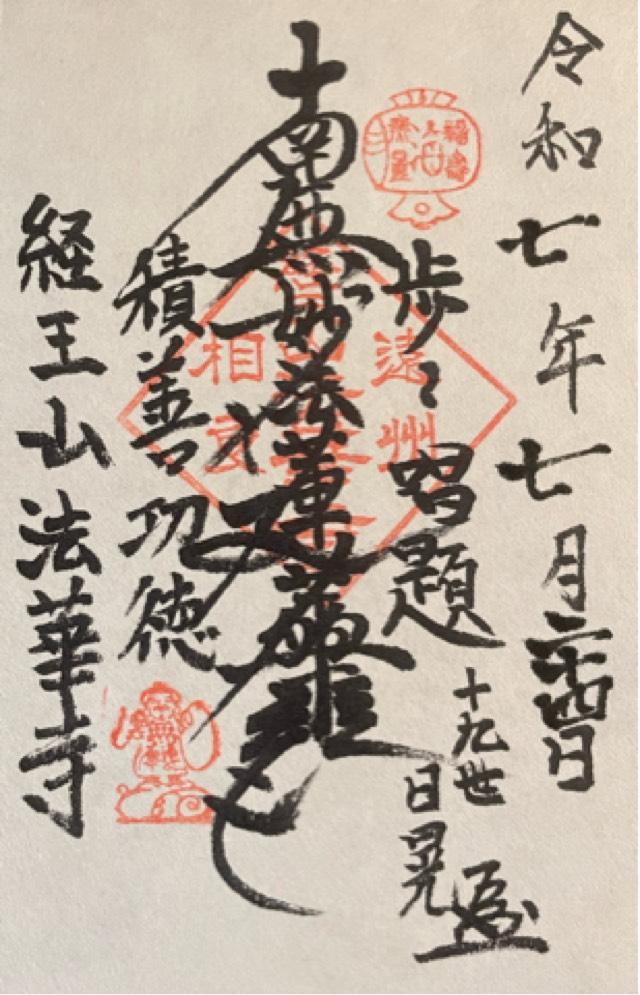 令和七年七月二十四日
歩々唱題
十九世
日晃
南無妙法蓮華経
積善功徳
経王山法華寺
遠州
相良
福寿
無量